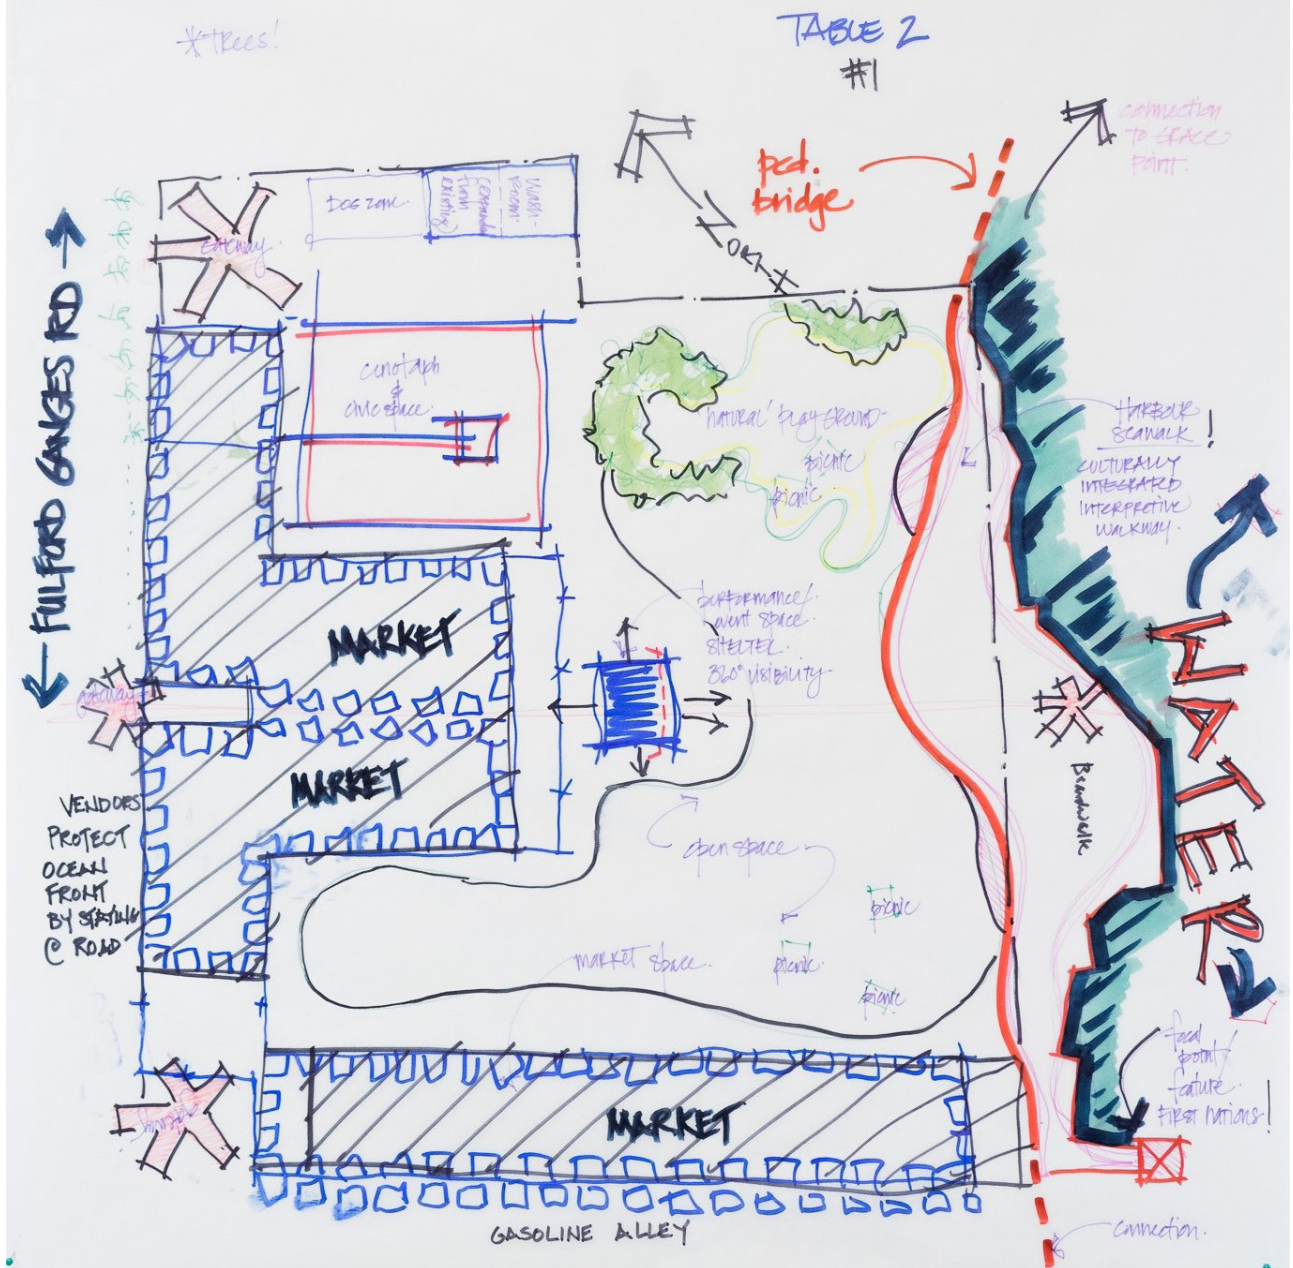 *TREES!
TABLE 2
#1
connection
to GRACE
Point.
ped.
bridge
NORTH
DOG ZONE
Wash-
room.
(expanded
from
existing)
gateway
← FULFORD GANGES RD →
cenotaph
&
civic space.
'natural' playground-
picnic
picnic
HARBOUR
SEAWALK!
CULTURALLY
INTEGRATED
INTERPRETIVE
WALKWAY.
performance/
event space.
SHELTER.
360° visibility
MARKET
gateway
MARKET
WATER
Boardwalk
VENDORS
PROTECT
OCEAN
FRONT
BY STAYING
@ ROAD
open space
picnic
market space.
picnic
picnic
focal
point/
feature.
FIRST NATIONS!
MARKET
GASOLINE ALLEY
connection.